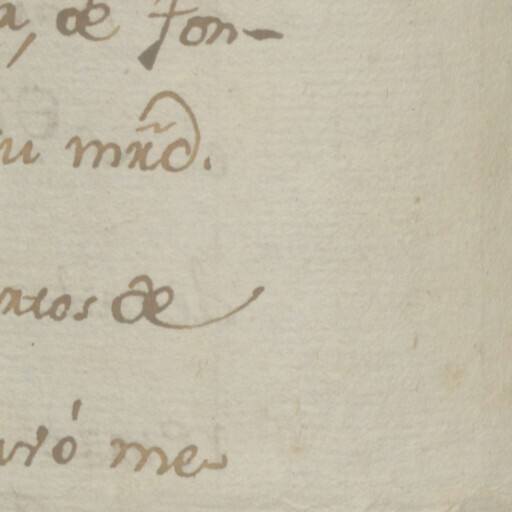 a, de fon-
u mrd.
ntos de
rió me